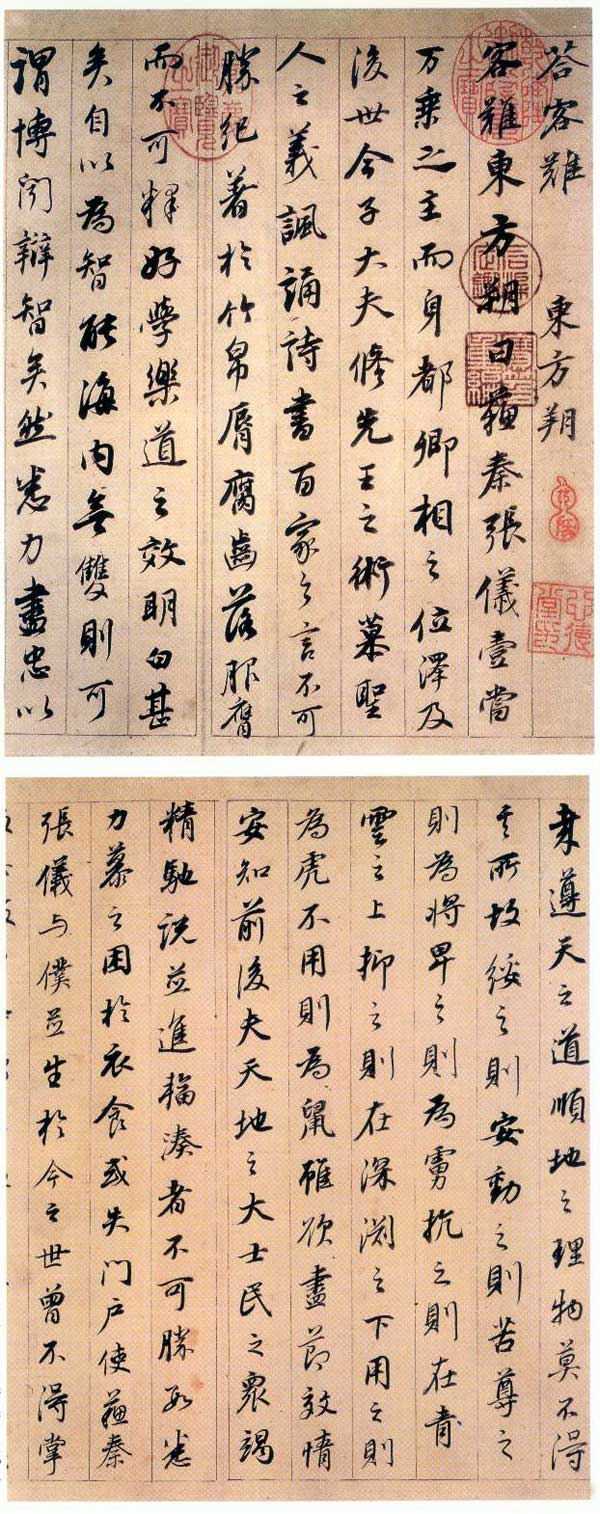 答客難 東方朔
客難東方朔曰蘇秦張儀壹當
万乘之主而身都卿相之位澤及
後世今子大夫修先王之術慕聖
人之義諷誦詩書百家之言不可
勝紀著於竹帛脣腐齒落服膺
而不可釋好學樂道之效明白甚
矣自以為智能海内無雙則可
謂博聞辯智矣然悉力盡忠以
聿遵天之道順地之理物莫不得
其所故綏之則安動之則苦尊之
則為將卑之則為虜抗之則在青
雲之上抑之則在深淵之下用之則
為虎不用則為鼠雖欲盡節效情
安知前後夫天地之大士民之衆竭
精馳說並進輻湊者不可勝數悉
力慕之困於衣食或失門户使蘇秦
張儀与僕並生於今之世曾不得掌